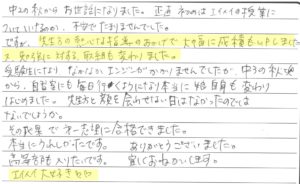 中2の秋からお世話になりました。正直初めはエイメイの授業に
ついていけるのか、不安でたまりませんでした。
ですが、先生方の熱心な指導のおかげで大幅に成績もUPしました
又、勉強に対する取組も変わりました。
受験生になりなかなかエンジンがかかりませんでしたが、中3の秋頃
から、自習室にも毎日行くようになり本当に自身も変わり
はじめました。先生方と顔を合わせない日はなかったのでは
ないでしょうか。
その結果で第一志望に合格できました。
本当にうれしかったです。ありがとうございました。
高等部も入りたいです。宜しくおねがいします。
エイメイ大好きです